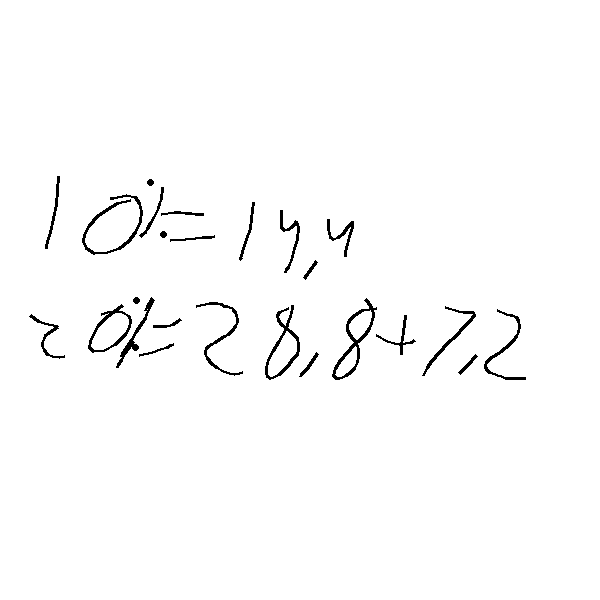 10%=14,4
20%=28,8+7,2